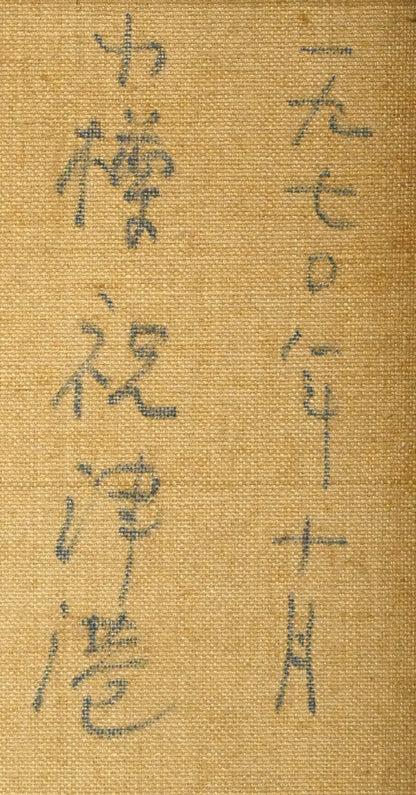 一九七〇年十月
小樽祝津港